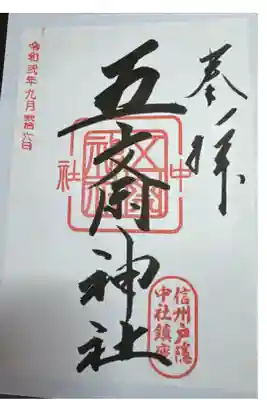 奉拝
五斎神社
中社
信州戸隠
中社鎮座
令和弐年九月弐拾六日